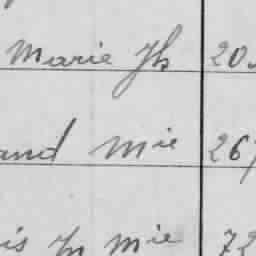 Marie Jh 20
and Mie 267
is Jn Mie 72